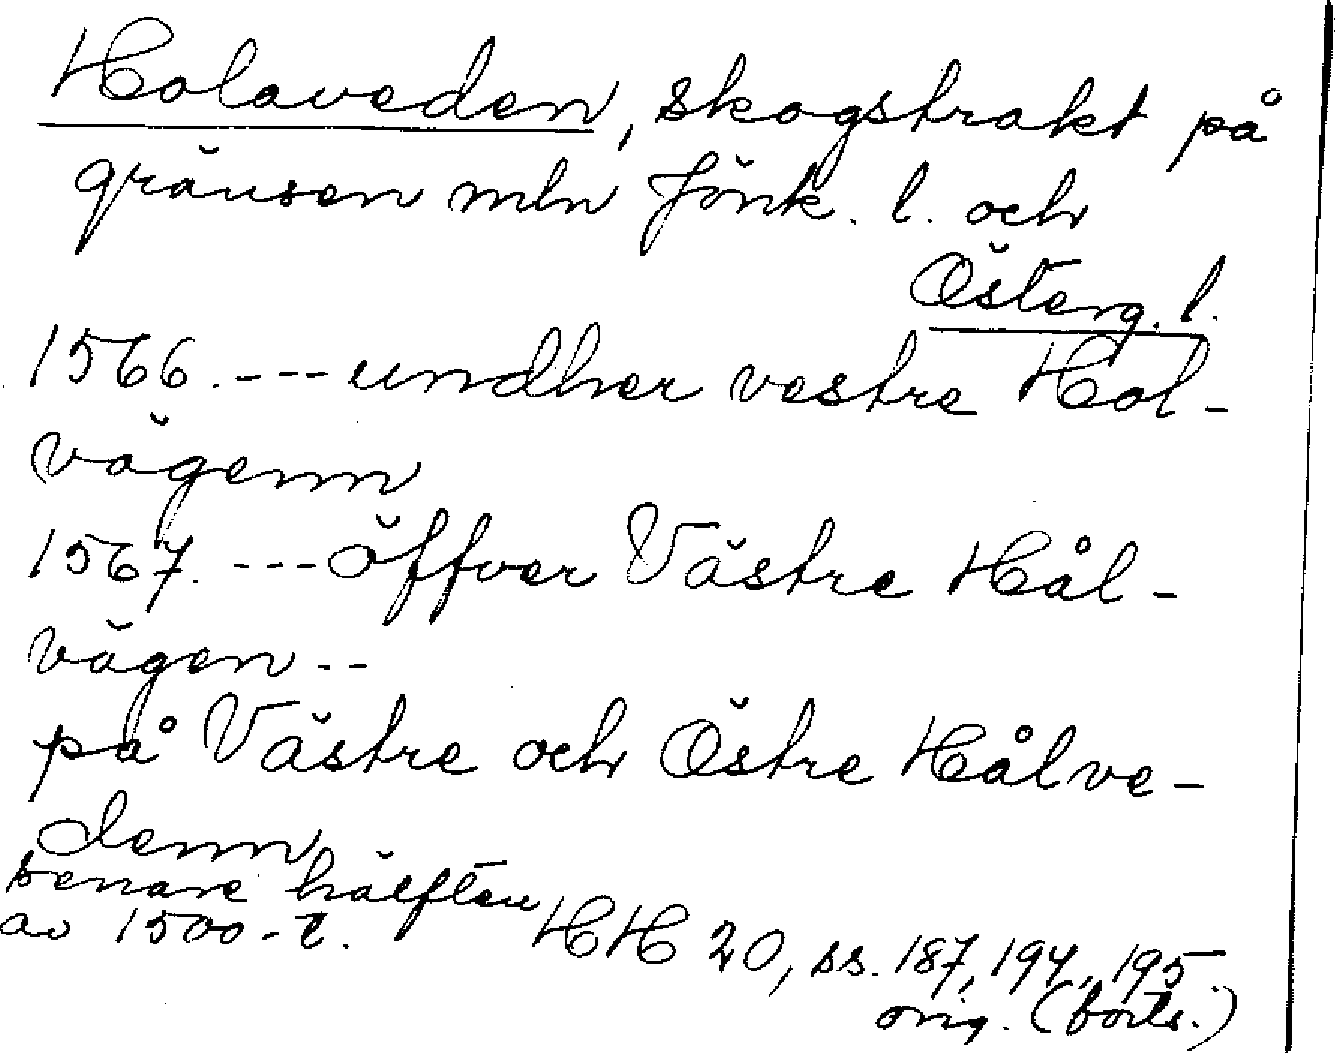 Holaveden, skogstrakt på
gränsen mln Jönk. l. och
Österg. l.
1566. --- undher vestre Hol-
vägenn
1567. --- öffver Västre Hål-
vägen --
på Västre och Östre Hålve-
denn
senare hälften
av 1500-t.
HH 20, ss. 187, 194, 195.
orig. (forts.)